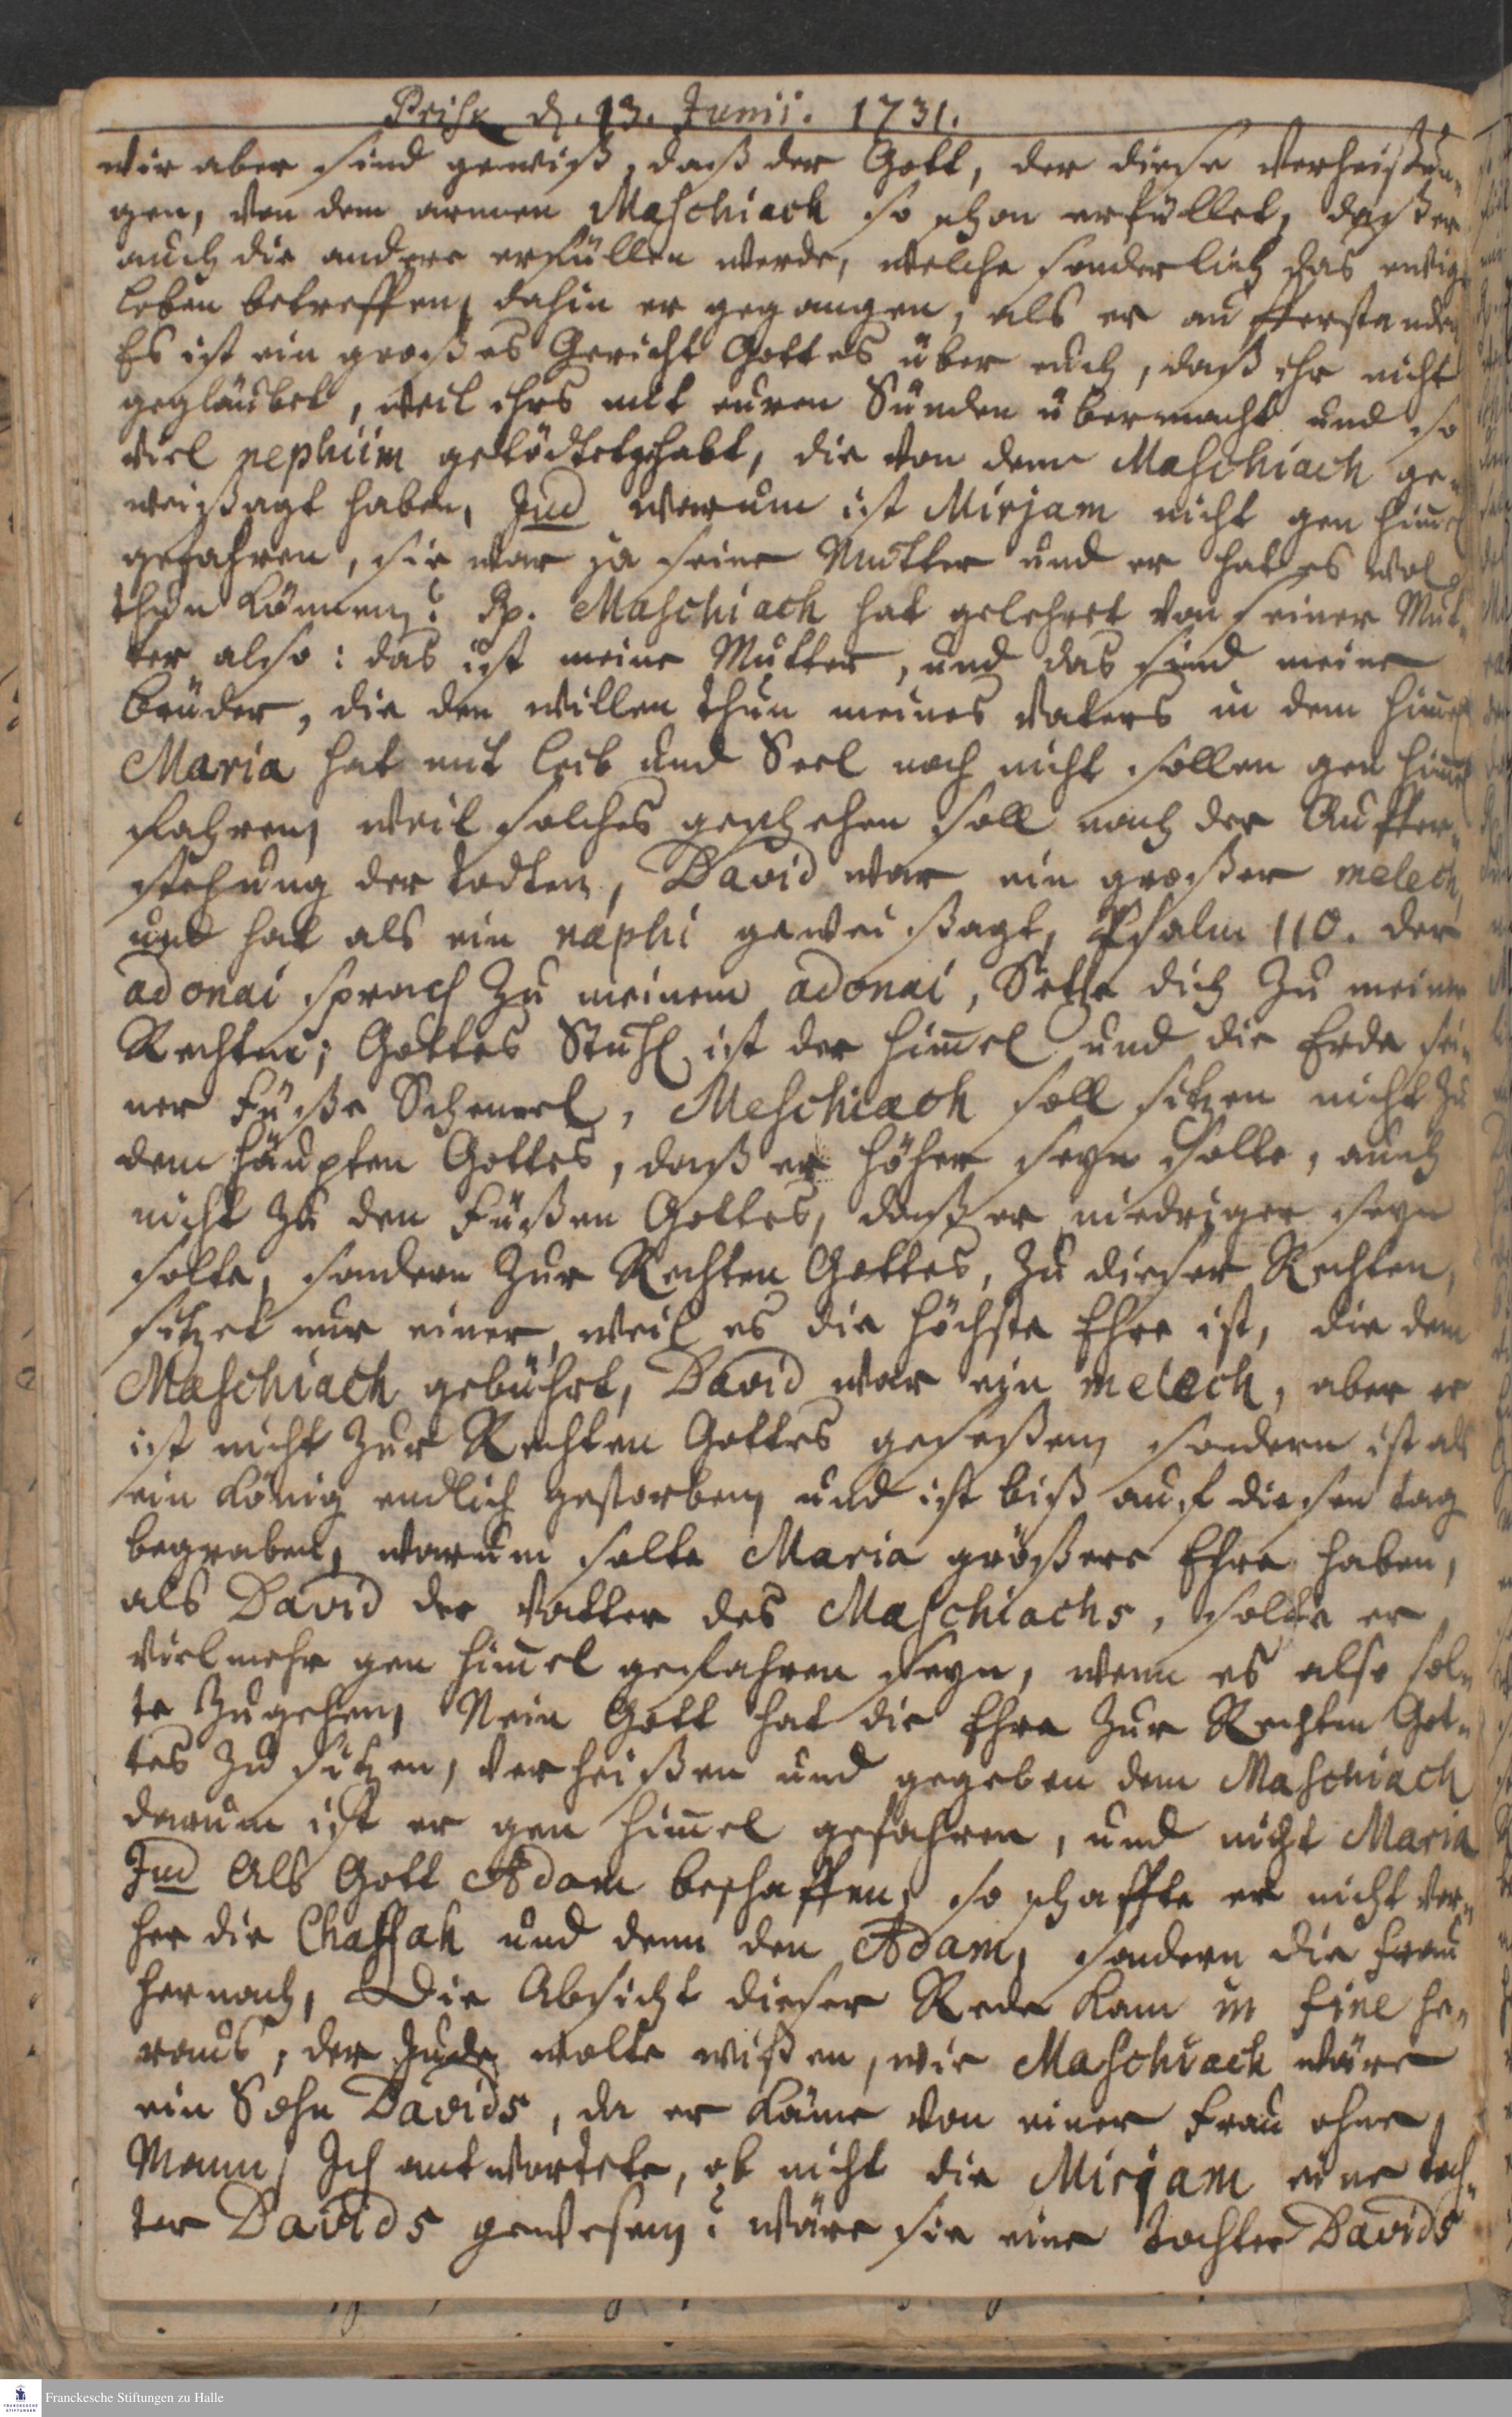 Prisk d. 13. Junii. 1731.
wir aber sind gewiß, daß der Gott, der diese Verheißun-
gen, von dem armen Maschiach so schon erfüllet, daß er
auch die andere erfüllen werde, welche sonderlich das ewig
leben betreffen, dahin er gegangen, als er aufferstanden
Es ist ein großes Gericht Gottes über euch, daß ihr nicht
gegläubet, weil ihrs mit euren Sünden übermacht und so
viel nephiim getödtet gehabt, die von dem Maschiach ge-
weissagt haben, Jud warum ist Mirjam nicht gen Himel
gefahren, sie war ja seine Mutter und er hat es wol
thun können? Rp. Maschiach hat gelehret von seiner Mut-
ter also: das ist meine Mutter, und das sind meine
brüder, die den willen thun meines Vaters in dem Himel
Maria hat mit leib und Seel noch nicht sollen gen Himel
fahren, weil solches geschehen soll nach der Auffer-
stehung der todten, David war ein großer melech,
und hat als ein naphi geweissagt, Psalm 110. der
adonai sprach zu meinem adonai, Setze dich zu meiner
Rechten; Gottes Stuhl ist der Himel und die Erde sei-
ner Füße Schemel, Meschiach soll sitzen nicht zu
dem häupten Gottes, daß er höher seyn solte, auch
nicht zu den Füßen Gottes, daß er niedriger seyn
solte, sondern zur Rechten Gottes, zu dieser Rechten,
sitzet nur einer, weil es die höchste Ehre ist, die dem
Maschiach gebührt, David war ein melech, aber er
ist nicht zur Rechten Gottes gesessen, sondern ist als
ein König endlich gestorben, und ist biß auf diesen tag
begraben, warum solte Maria größere Ehre haben,
als David der Vatter des Maschiachs, solte er
vielmehr gen Himel gefahren seyn, wenn es also sol-
te zugehen, Nein Gott hat die Ehre zur Rechten Got-
tes zu sitzen, verheißen und gegeben dem Maschiach
darum ist er gen Himel gefahren, und nicht Maria
Jud Als Gott Adam beschaffen, so schaffte er nicht vor-
her die Chaffah und denn den Adam, sondern die Frau
hernach, Die Absicht dieser Rede kam in fine he-
raus, der Jude wolte wißen, wie Maschiach wäre
ein Sohn Davids, da er käme von einer Frau ohne
Mann, Ich antwortete, ob nicht die Mirjam eine toch-
ter Davids gewesen? wäre sie eine tochter Davids
Franckesche Stiftungen zu Halle